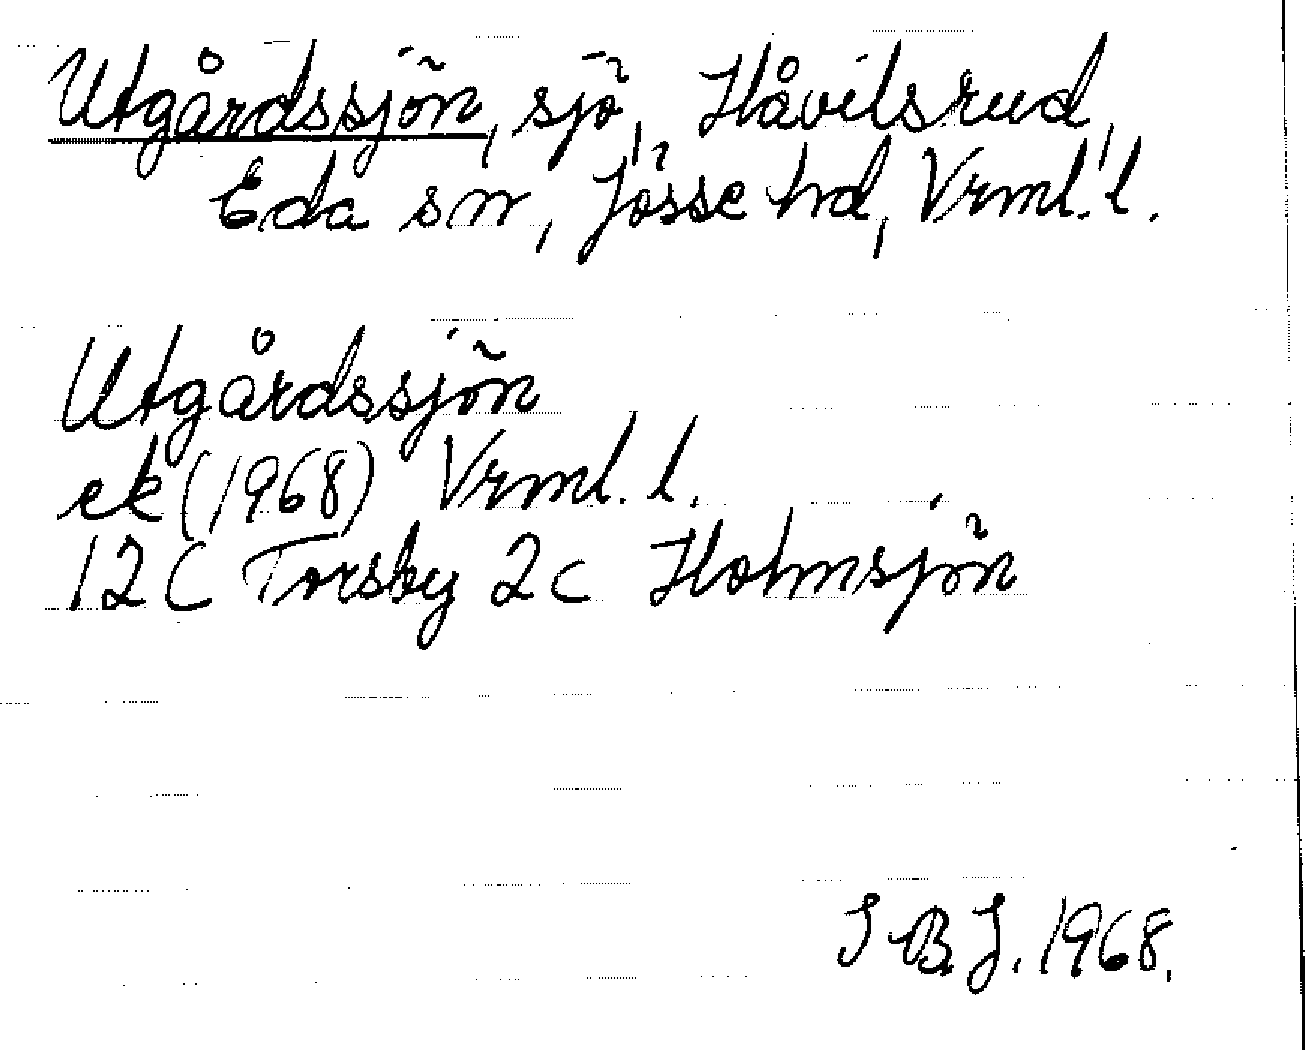 Utgårdssjön, sjö, Håvilsrud,
Eda sn, Jösse hd, Vrml. l.
Utgårdssjön
ek (1968) Vrml. l.
12 C Torsby 2c Holmsjön
I B. J. 1968.